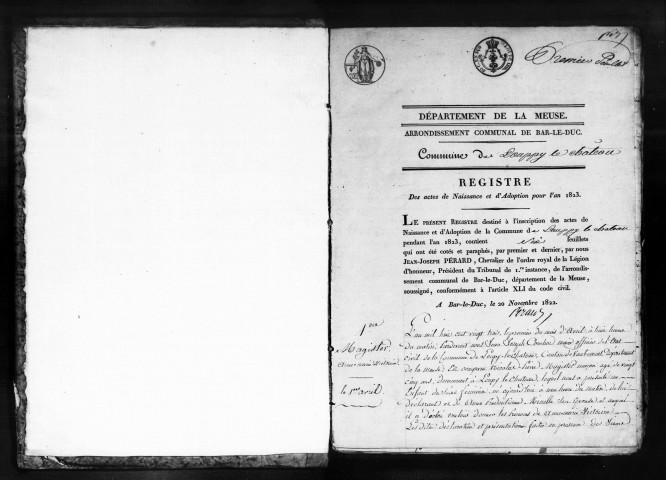 Premier feuillet
DÉPARTEMENT DE LA MEUSE.
ARRONDISSEMENT COMMUNAL DE BAR-LE-DUC.
Commune de Louppy le château
REGISTRE
Des actes de Naissance et d'Adoption pour l'an 1823.
LE PRÉSENT REGISTRE destiné à l'inscription des actes de
Naissance et d'Adoption de la Commune de Louppy le chateau
pendant l'an 1823, contient six feuillets
qui ont été cotés et paraphés, par premier et dernier, par nous
JEAN-JOSEPH PÉRARD, Chevalier de l'ordre royal de la Légion
d'honneur, Président du Tribunal de 1.re instance, de l'arrondis-
sement communal de Bar-le-Duc, département de la Meuse,
soussigné, conformément à l'article XLI du code civil.
A Bar-le-Duc, le 20 Novembre 1822.
Pérard
1ere
Magister
le 1er avril
L'an mil huit cent vingt trois, le premier du mois d'Avril, à huit heures
du matin, Pardevant nous Jean Joseph officier de l'état
civil de la Commune de Louppy le Château, Canton de Vaubecourt, Département
de la Meuse, Est comparu Nicolas Magister âgé de vingt
cinq ans, demeurant à Louppy le Château, lequel nous a présenté un
Enfant du Sexe féminin, né à heures du matin, de lui
déclarant et de son Epouse, et auquel
il a déclaré vouloir donner les prénoms de
Les dites déclaration et présentation faites en présence des Sieurs